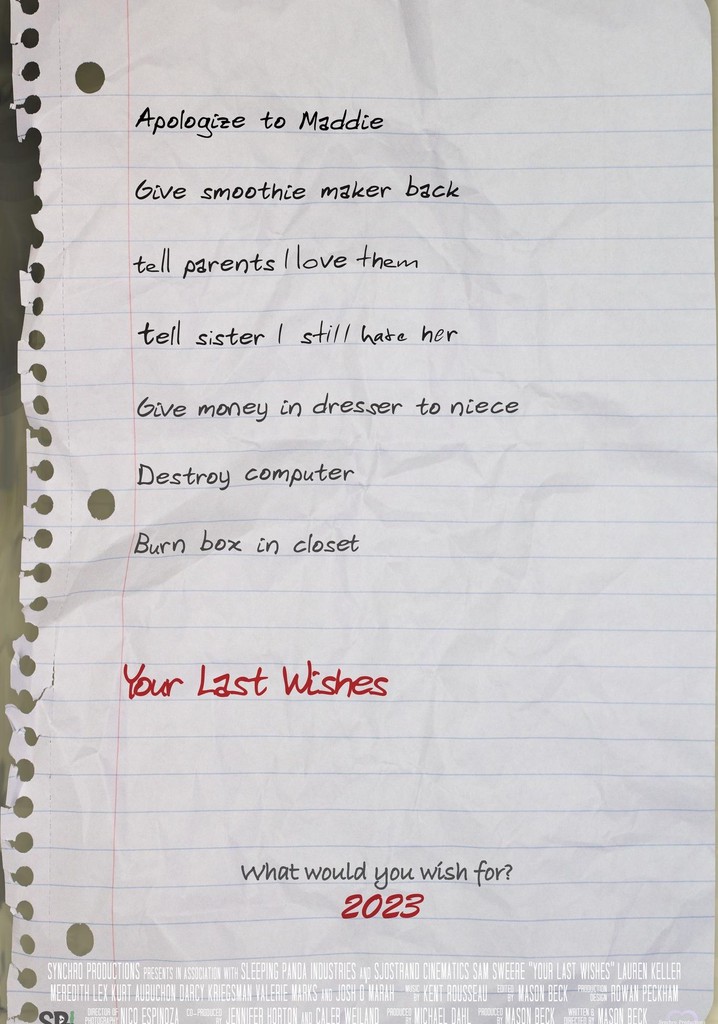 Apologize to Maddie
Give smoothie maker back
tell parents I love them
tell sister I still hate her
Give money in dresser to niece
Destroy computer
Burn box in closet
Your Last Wishes
What would you wish for?
2023
SYNCHRO PRODUCTIONS PRESENTS IN ASSOCIATION WITH SLEEPING PANDA INDUSTRIES AND SJOSTRAND CINEMATICS SAM SWEERE "YOUR LAST WISHES" LAUREN KELLER
MEREDITH LEX KURT AUBUCHON DARCY KRIEGSMAN VALERIE MARKS AND JOSH O MARAH MUSIC BY KENT ROUSSEAU EDITED BY MASON BECK PRODUCTION DESIGN ROWAN PECKHAM
DIRECTOR OF PHOTOGRAPHY NICO ESPINOZA CO-PRODUCED BY JENNIFER HORTON AND CALEB WEILAND PRODUCED BY MICHAEL DAHL PRODUCED BY MASON BECK WRITTEN & DIRECTED BY MASON BECK